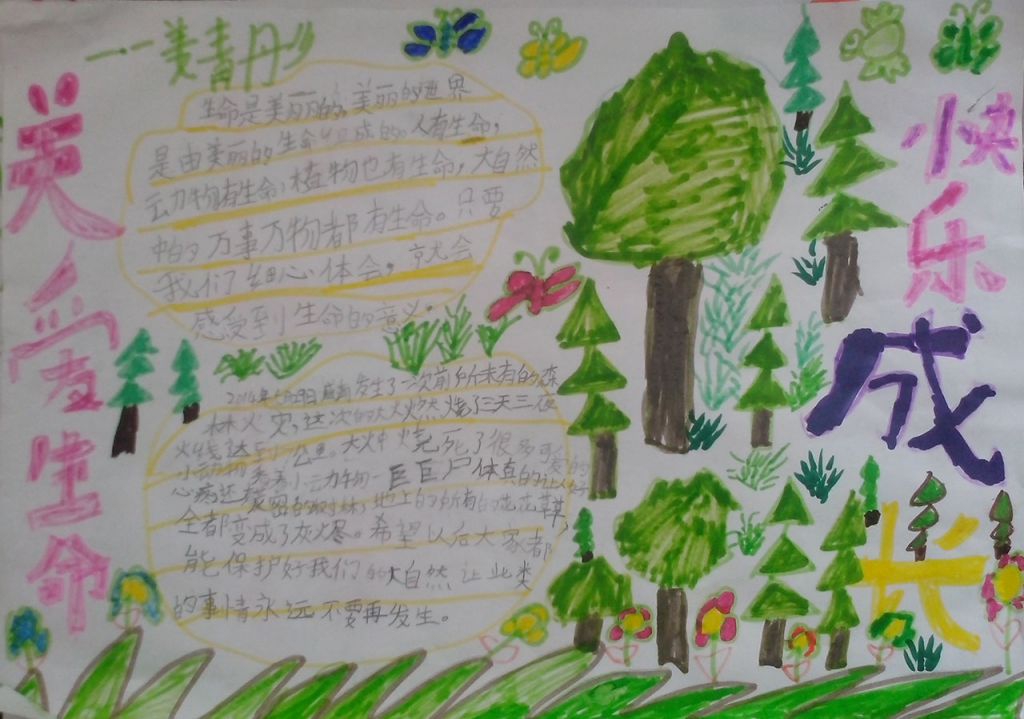 一一姜青丹
关爱生命
快乐成长
生命是美丽的，美丽的世界
是由美丽的生命组成的。人有生命，
动物有生命，植物也有生命，大自然
中的万事万物都有生命。只要
我们细心体会，就会
感受到生命的意义。
发生了一次前所未有的森
林火灾，这次的大火燃烧了三天三夜
火线达到 公里。大火中烧死了很多可爱的
小动物看着小动物一 尸体真的让人好
心痛还有 的树林，地上的所有的花花草草，
全都变成了灰烬。希望以后大家都
能保护好我们的大自然让此类
的事情永远不要再发生。